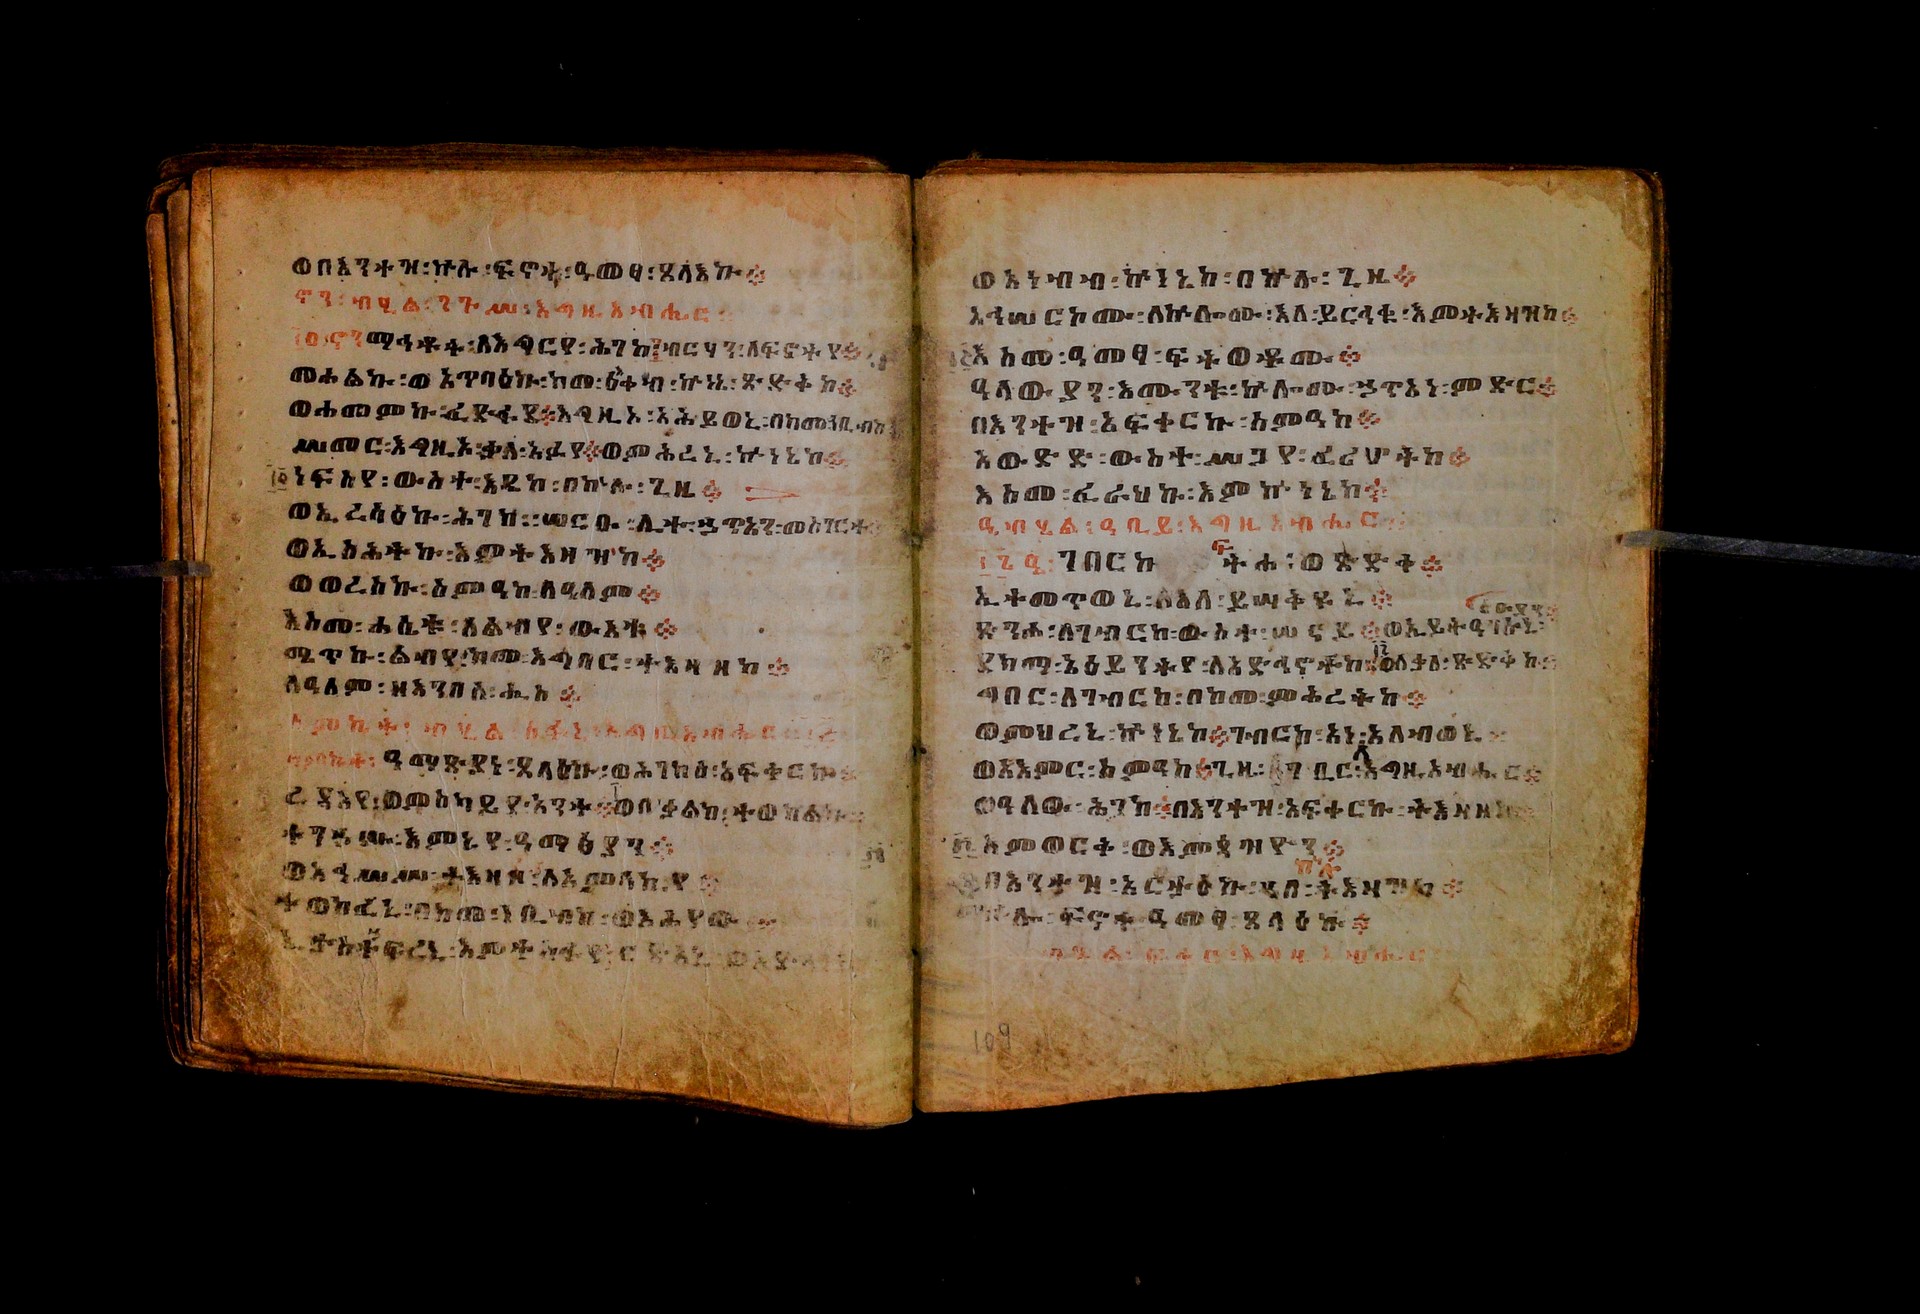 ወበእንተዝ፡ኵሉ፡ፍኖት፡ዓመፃ፡ጸላእኩ።
ኖን፡ብሂል፡ንጉሥ፡እግዚአብሔር፡
ኖን ማኅቶት፡ለእግርየ፡ሕግከ፡ብርሃን፡ለፍኖትየ።
መሐልኩ፡ወአጥባዕኩ፡ከመ፡ዕቀብ፡ኵነኔ፡ጽድቅከ።
ወሐመምኩ፡ፈድፋደ።እግዚኦ፡አሕይወኒ፡በከመ፡ነቢብከ
ሥመር፡እግዚኦ፡ቃለ፡አፉየ።ወምሕረኒ፡ኵነኔከ።
ነፍስየ፡ውስተ፡እዴከ፡በኵሉ፡ጊዜ።
ወኢረሳዕኩ፡ሕገከ፡ሠርዑ፡ሊተ፡ኃጥአን፡መስገርተ።
ወኢስሕትኩ፡እምትእዛዝከ።
ወወረስኩ፡ስምዓከ፡ለዓለም።
እስመ፡ሐሴቱ፡ለልብየ፡ውእቱ።
ሜጥኩ፡ልብየ፡ከመ፡እግበር፡ትእዛዘከ።
ለዓለም፡ዘእንበለ፡
ሳምኬት፡ብሂል፡
ዓማፅያነ፡ጸላዕኩ፡ወሕገከሰ፡አፍቀርኩ።
ረዳእየ፡ወምስካይየ፡አንተ።ወበቃልከ፡ተወከልኩ።
ተገኀሡ፡እምኔየ፡ዓማፅያን።
ወእኅሥሥ፡ትእዛዘ፡ለአምላኪየ።
ተወከፈኒ፡በከመ፡ነቢብከ፡ወአሕየው።
እምተስፋየ፡ርድአኒ፡
ወእነብብ፡ኵነኔከ፡በኵሉ፡ጊዜ።
አኅሠርኮሙ፡ለኵሎሙ፡እለ፡ይርኅቁ፡እምትእዛዝከ።
እስመ፡ዓመፃ፡ፍትወቶሙ።
ዓላውያን፡እሙንቱ፡ኵሎሙ፡ኃጥአነ፡ምድር።
በእንተዝ፡አፍቀርኩ፡ስምዓከ።
አውድድ፡ውስተ፡ሥጋየ፡ፈሪሆትከ።
እስመ፡ፈራህኩ፡እምኵነኔከ።
ዔ፡ብሂል፡ዓቢይ፡እግዚአብሔር፡
ገበርኩ ፍትሐ፡ወጽድቀ።
ኢተመጥወኒ፡ለእለ፡ይሣቅዩኒ።
ጽንሖ፡ለገብርከ፡ውስተ፡ሠናይ።
ደክማ፡አዕይንትየ፡ለአድኅኖትከ።ወለቃለ፡ጽድቅከ።
ግበር፡ለገብርከ፡በከመ፡ምሕረትከ።
ወምህረኒ፡ኵነኔከ።ገብርከ፡አነ፡አለብወኒ።
ወአእምር፡ስምዓከ።ጊዜ፡ገቢር፡ለእግዚአብሔር።
ወዓለው፡ሕገከ።በእንተዝ፡አፍቀርኩ፡ትእዛዘከ
እምወርቅ፡ወእምጳዝዮን።
በእንተዝ፡አርታዕኩ፡ኀበ፡ትእዛዝከ።
ኵሎ፡ፍኖተ፡ዓመፃ፡ጸላዕኩ።
109